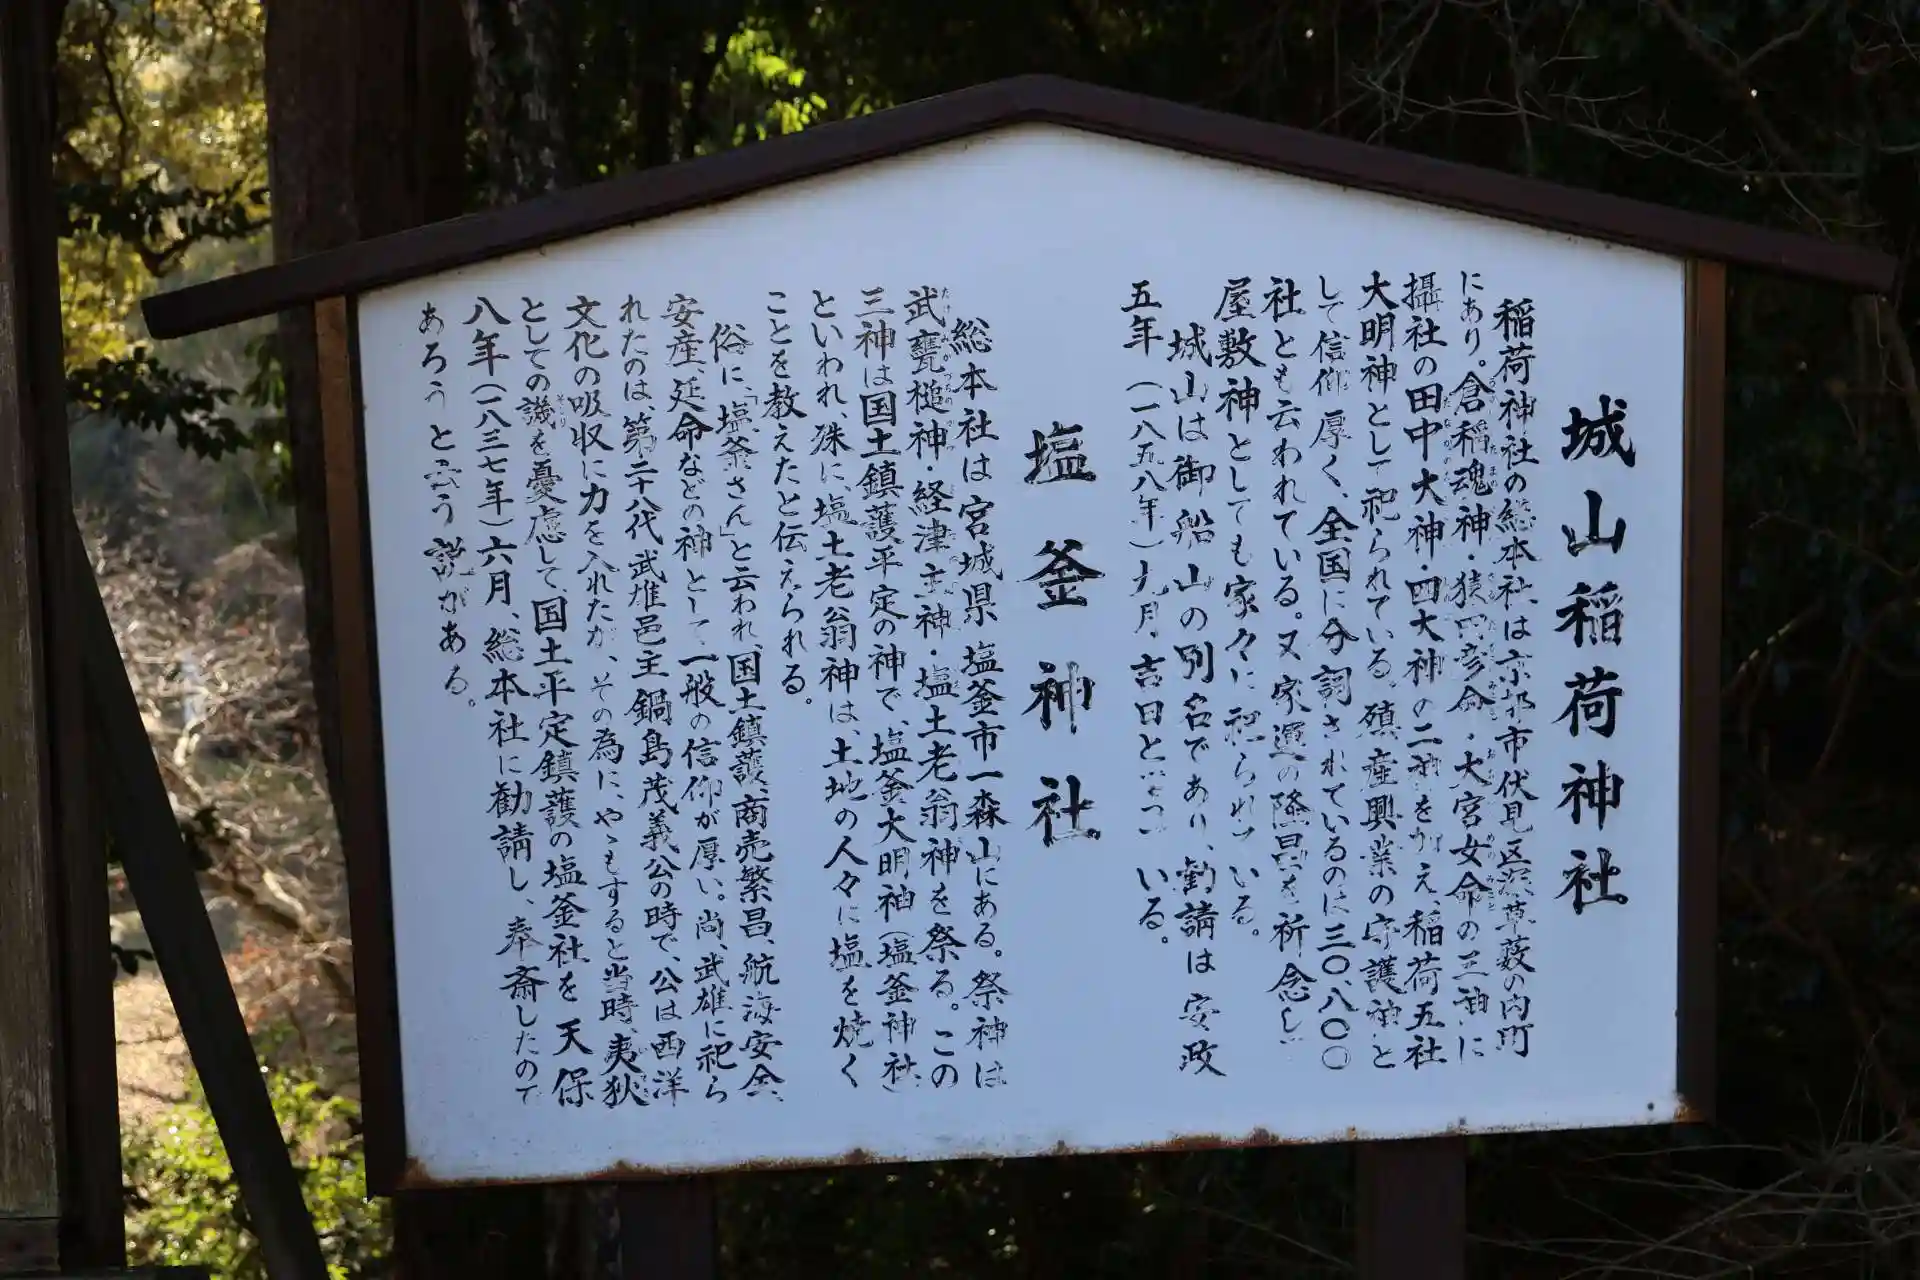 城山稲荷神社
稲荷神社の総本社は京都市伏見区深草薮の内町
にあり。倉稲魂神・猿田彦命・大宮女命の三神に
攝社の田中大神・四大神の二神を加え、稲荷五社
大明神として祀られている。殖産興業の守護神と
して信仰厚く、全国に分詞されているのに三〇、八〇〇
社とも云われている。又家運の隆昌を祈念し
屋敷神としても家々に祀られている。
城山は御船山の別名であり、勧請は安政
五年(一八五八年)九月、吉日と いる。
塩釜神社
総本社は宮城県塩釜市一森山にある。祭神は
武甕槌神・経津主神・塩土老翁神を祭る。この
三神は国土鎮護平定の神で、塩釜大明神(塩釜神社)
といわれ、殊に、塩土老翁神は、土地の人々に塩を焼く
ことを教えたと伝えられる。
俗に、「塩釜さん」と云われ、国土鎮護、商売繁昌、航海安全、
安産、延命などの神として一般の信仰が厚い。尚、武雄に祀ら
れたのは、第二十八代武雄邑主鍋島茂義公の時で、公は西洋
文化の吸収に力を入れたが、その為に、やゝもすると当時、夷狄
としての譏を憂慮して、国土平定鎮護の塩釜社を天保
八年(一八三七年)六月、総本社に勧請し、奉斎したので
あろうと云う説がある。